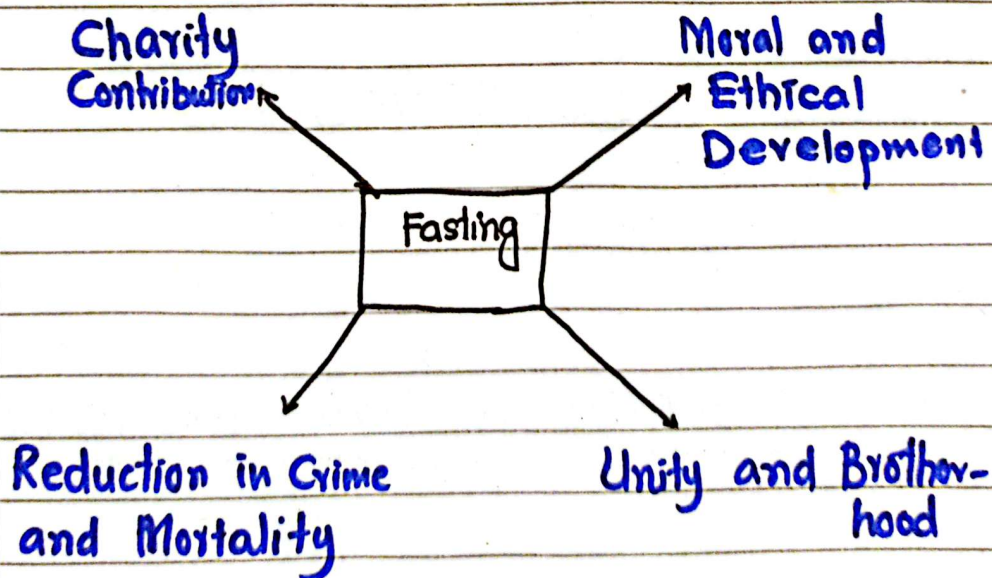 Charity
Contribution
Moral and
Ethical
Development
Fasting
Reduction in Crime
and Mortality
Unity and Brother-
hood